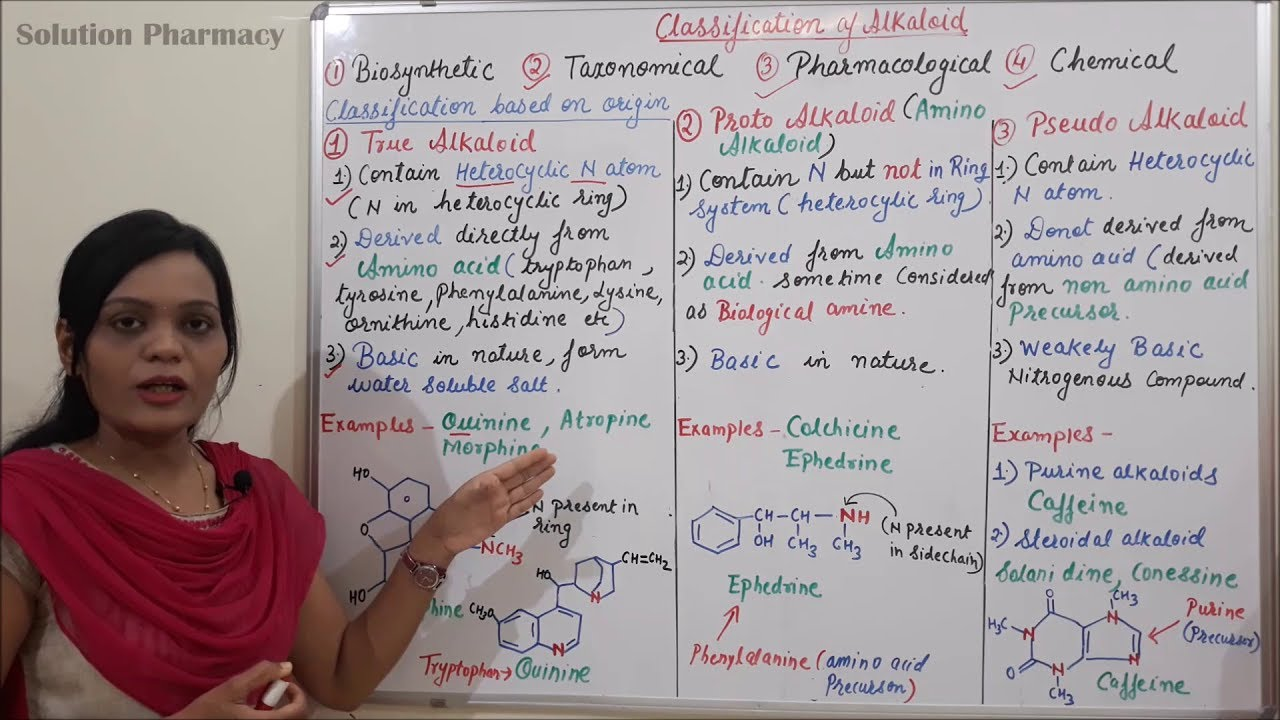 Solution Pharmacy
Classification of Alkaloid
① Biosynthetic ② Taxonomical ③ Pharmacological ④ Chemical
Classification based on origin
① True Alkaloid
1) Contain Heterocyclic N atom
(N in heterocyclic ring)
2) Derived directly from
Amino acid (tryptophan,
tyrosine, Phenylalanine, Lysine,
ornithine, histidine etc)
3) Basic in nature, form
water soluble salt.
Examples - Quinine, Atropine
Morphine
HO
O
HO
NCH3
N present in
ring
phine
HO
CH=CH2
N
CH3O
N
Tryptophan → Quinine
② Proto Alkaloid (Amino
Alkaloid)
1) Contain N but not in Ring
System (heterocylic ring)
2) Derived from Amino
acid. sometime Considered
as Biological amine.
3) Basic in nature.
Examples - Colchicine
Ephedrine
CH-CH-NH
OH CH3 CH3
(N present
in sidechain)
Ephedrine
Phenylalanine (amino acid
Precurson)
③ Pseudo Alkaloid
1) Contain Heterocyclic
N atom.
2) Donot derived from
amino acid (derived
from non amino acid
Precursor.
3) Weakely Basic
Nitrogenous Compound.
Examples -
1) Purine alkaloids
Caffeine
2) Steroidal alkaloid
Solani dine, Conessine
O
CH3
H3C
N
N
O
N
N
CH3
Purine
(Precursor)
Caffeine